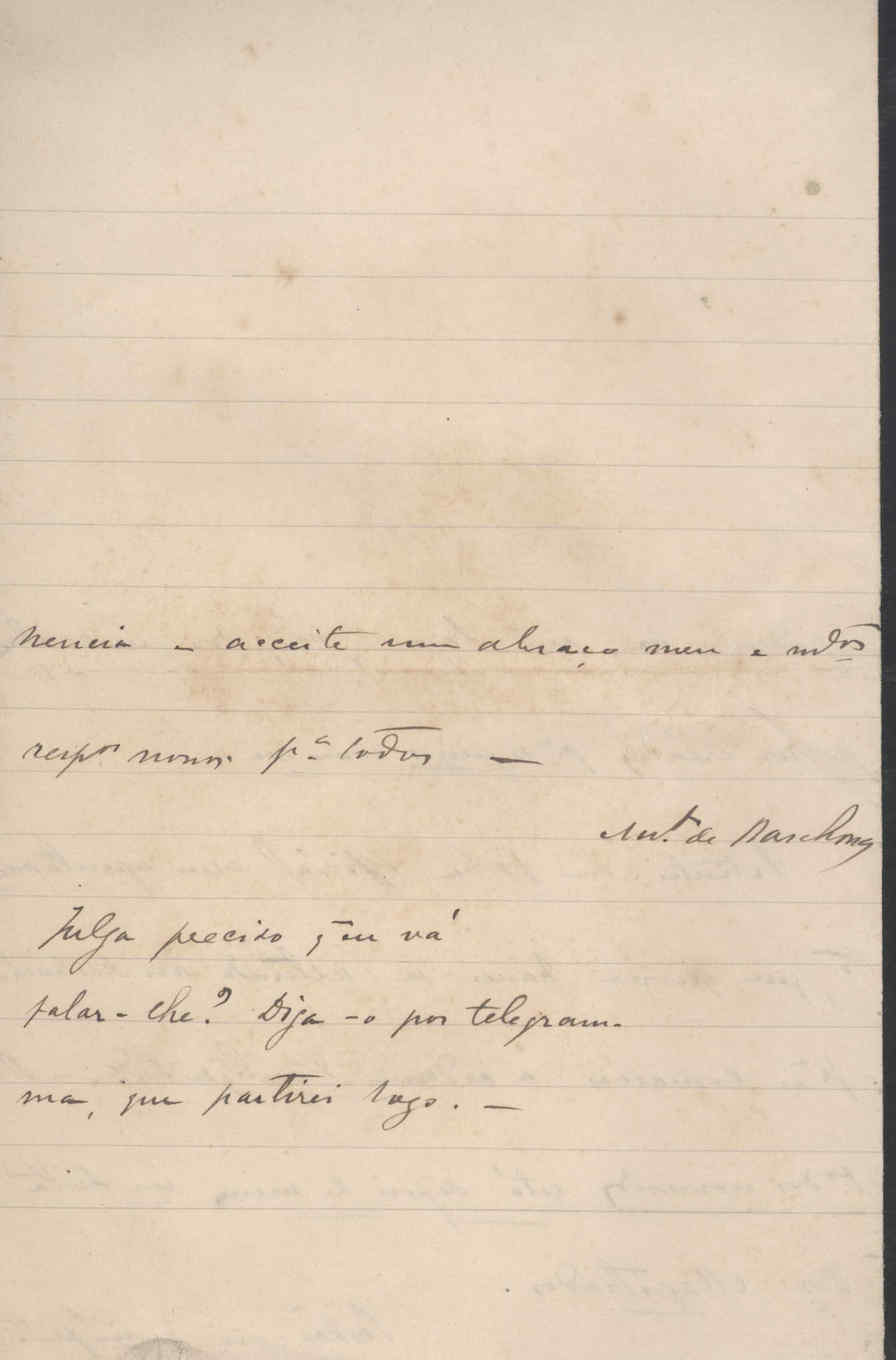 nencia e acceite um abraço meu e mtos
respos nossos pa todos —
Anto de
Julga preciso q̃ eu vá
falar-lhe? Diga-o por telegram-
ma, que partirei logo. —